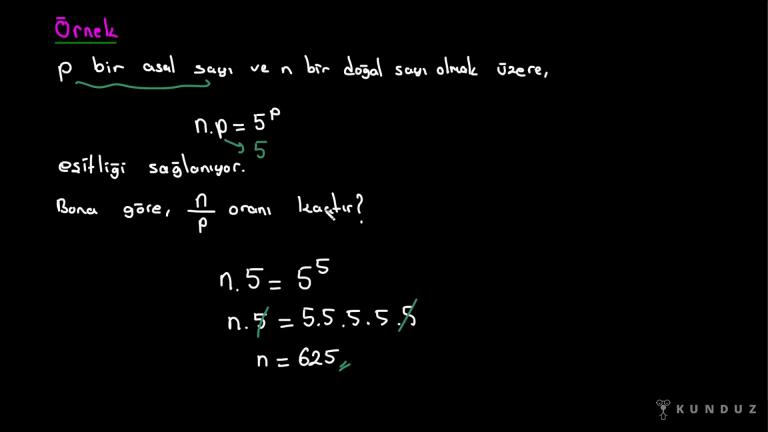 Örnek
p bir asal sayı ve n bir doğal sayı olmak üzere,
n.p = 5^p
5
eşitliği sağlanıyor.
Bona göre, n/p oranı kaçtır?
n.5 = 5^5
n.5 = 5.5.5.5.5
n = 625
KUNDUZ